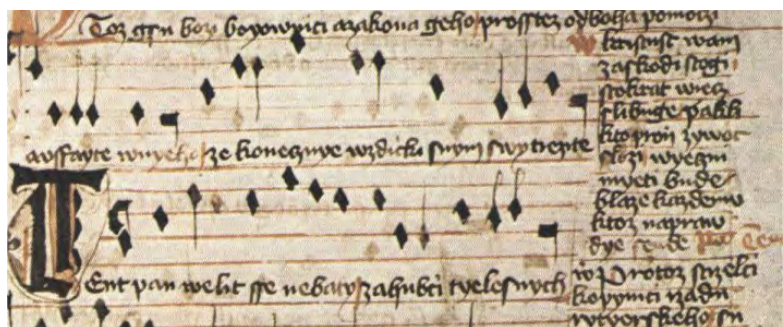 Toz gsu bozi boyownici azakona geho prosstez odboha pomoci
aussayte wnyeho ze konecznye wzdicki snym swytiezite
Tent pan welit sse nebaty zahubci tyelesnych
kristust wam
zaskodi stogi
stokrat wiecz
slibuge paklit
ktopron zywot
slozi wyeczni
myeti bude
blaze kazdemu
ktoz napraw
dye sende
Protoz strzelci
kopynici rzadu
rytyerskeho su